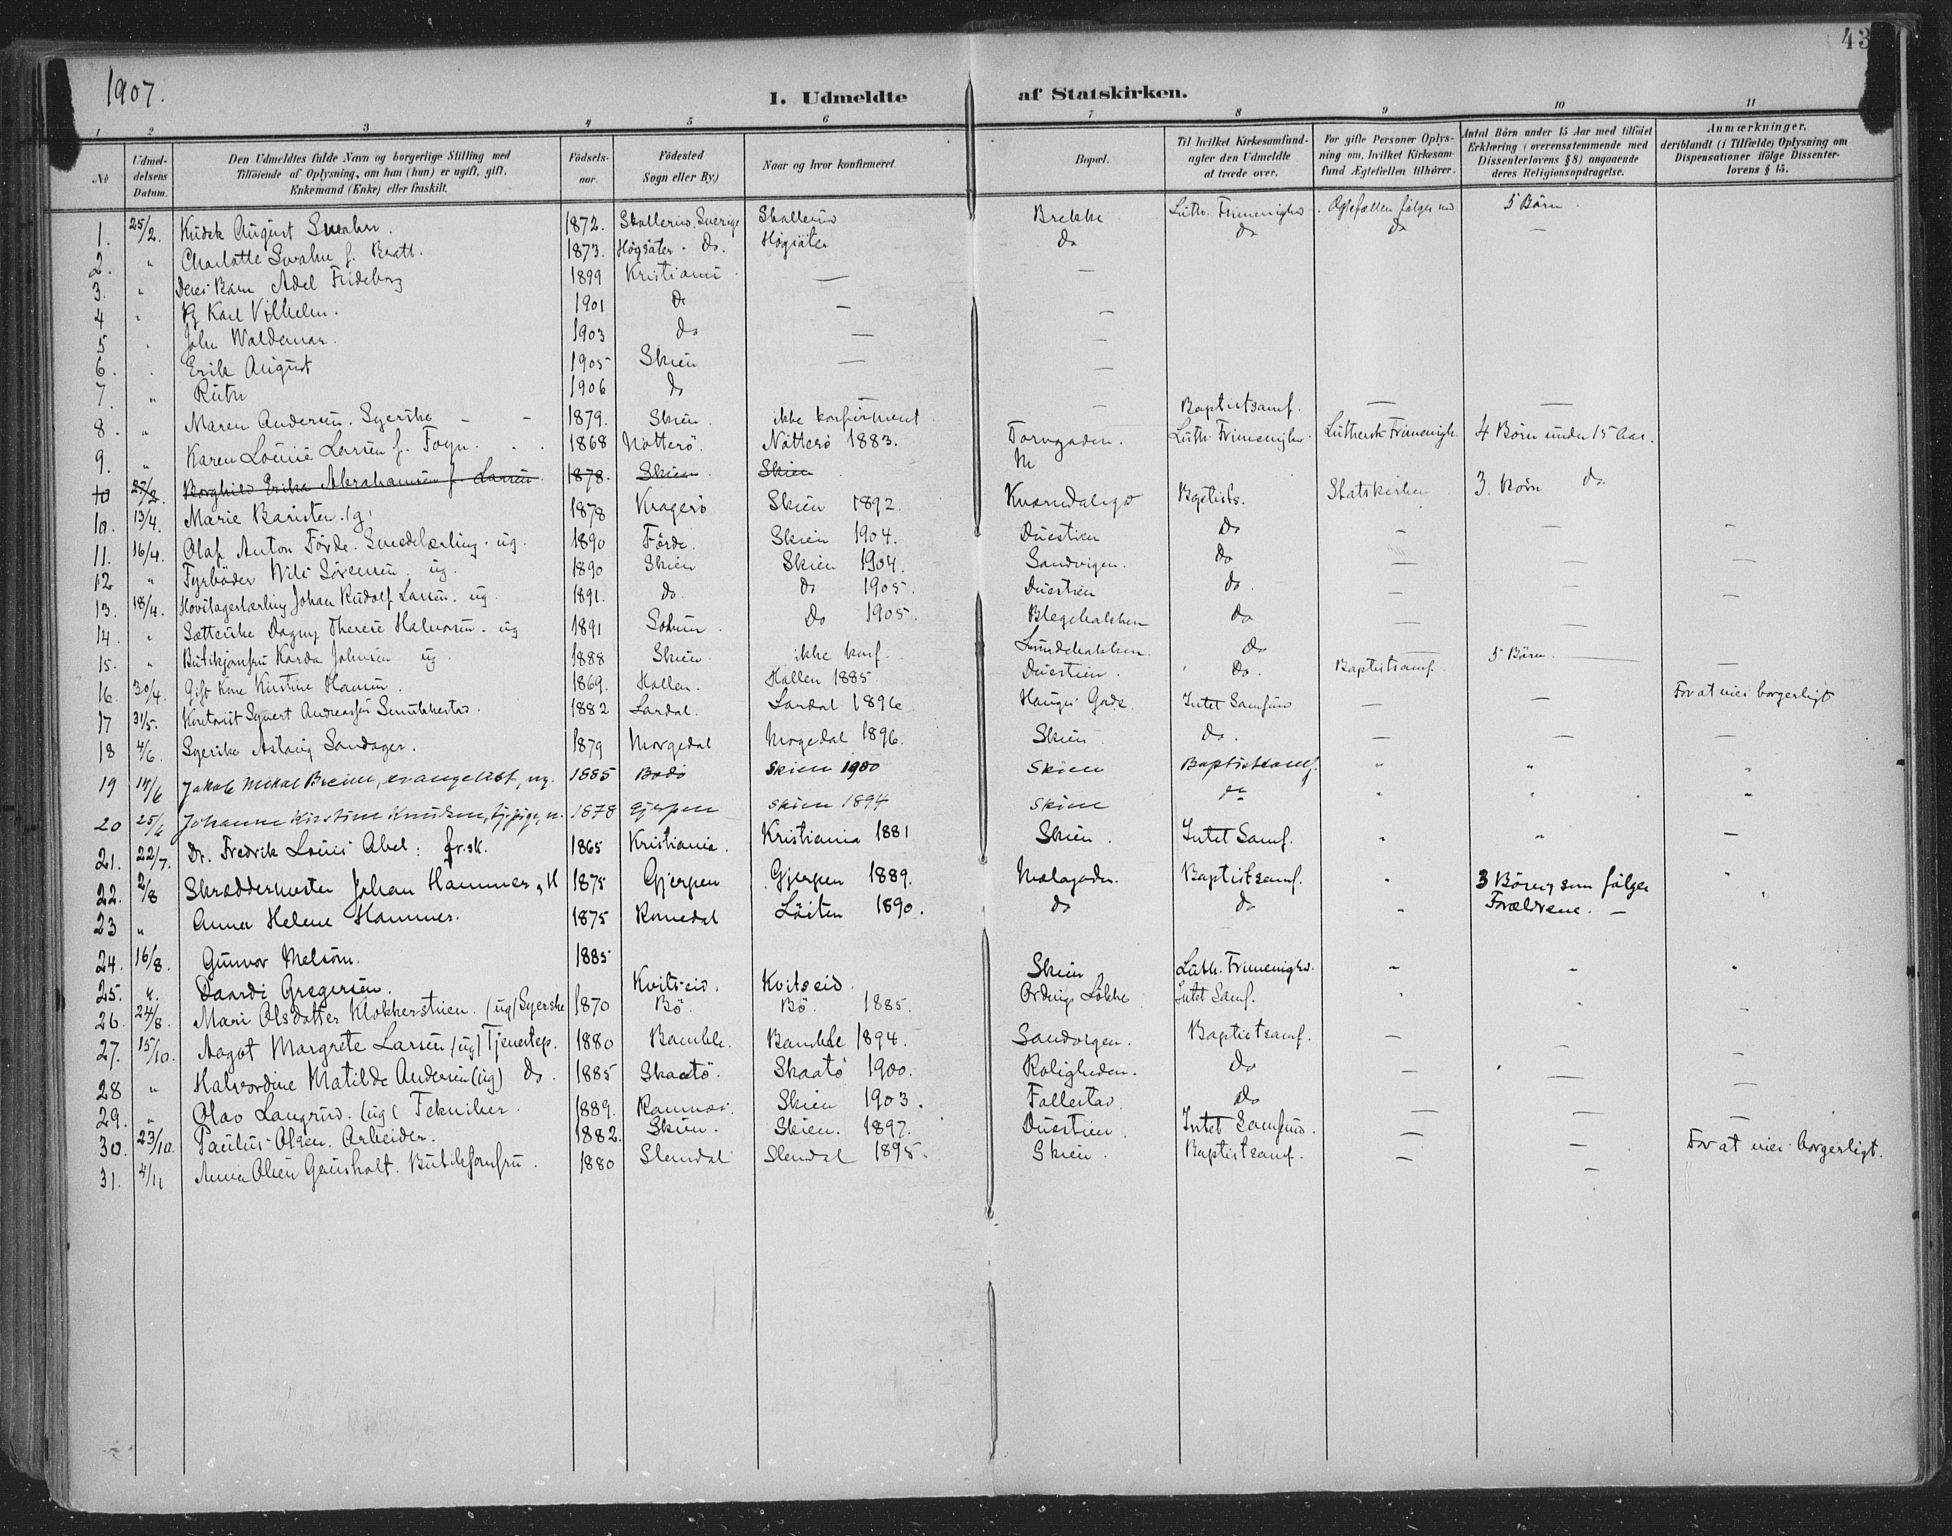 43
1907.
I. Udmeldte af Statskirken.
1 2 3 4 5 6 7 8 9 10 11
No
Udmel-
delsens
Datum.
Den Udmeldtes fulde Navn og borgerlige Stilling med
Tilføiende af Oplysning, om han (hun) er ugift, gift,
Enkemand (Enke) eller fraskilt.
Fødsels-
aar.
Fødested
Sogn eller By.)
Naar og hvor konfirmeret.
Bopæl.
Til hvilket Kirkesamfund-
agter den Udmeldte
at træde over.
For gifte Personer Oplys-
ning om, hvilket Kirkesam-
fund Ægtefællen tilhører.
Antal Børn under 15 Aar med tilføiet
Erklæring (overensstemmende med
Dissenterlovens § 8) angaaende
deres Religionsopdragelse.
Anmærkninger,
deriblandt (i Tilfælde) Oplysning om
Dispensationer ifølge Dissenter-
lovens § 15.
1. 25/2. August Swahn. 1872. Skallerud, Sverige Skallerud Brekke Luth. Frimenighed 5 Børn.
2. " Charlotte Swahn f. Bratt. 1873. Högsäter. do. Högsäter do do do —
3. " Deres Barn Adel Frideborg 1899 Kristiania — —
4 " Karl Vilhelm. 1901 do — —
5 " John Waldemar. 1903 do — —
6. " Erik August 1905 Skien — —
7. " Ruth 1906 do —
8. " Maren Andersen. Syerske 1879. Skien. ikke konfirmeret Baptistsamf. — —
9. " Karen Louise Larsen f. Foyn. 1868 Nötterö. Nötterö 1883. Torvgaden. Luth. Frimenighed. Luthersk Frimenigh. 4 Børn under 15 Aar.
10 27/2. Borghild Erika Abrahamsen f. Larsen 1878. Skien. Skien
10. 13/4. Marie 1878 Kragerö Skien 1892. Baptists. Statskirken 3. Børn do.
11. 16/4. Olaf Anton Förde. Smedelærling. ug. 1890 Förde. Skien 1904. Duestien do — — —
12 " Fyrböder Nils Sörensen. ug. 1890 Skien Skien 1904. Sandvigen. do — — —
13. 18/4. Johan Rudolf Larsen. ug. 1891. do. do 1905. Duestien do. — — —
14. " Sætterske Dagny Therese Halvorsen. ug 1891 Do 1905. Blegebakken do — —
15. " Butikjomfru Karda Johnsen ug 1888 Skien. ikke konf. Lundebakken. do —
16. 30/4. Gift Kone Kirstine Hansen. 1869. Hollen. Hollen 1885 Duestien. Do. Baptistsamf. 5 Børn. —
17 31/5. Kontorist Andreassen 1882 Lardal. Lardal 1896 Hauges Gade Intet Samfund — — For at vies borgerligt
18 4/6. Syerske Aslaug Sandager. 1879 Morgedal Morgedal 1896. Skien do. — — —
19 14/6 Jakob Mikal Breien, evangelist, ug. 1885 Bodö Skien 1900 Skien Baptistsamf. " " "
20 25/6 Johanne Kirstine Knudsen, 1878 Gjerpen Skien 1894 Skien do " " "
21. 22/7. Dr. Fredrik Louis Abel: fr.sk. 1865 Kristiania. Kristiania 1881 Skien. Intet Samf. " " —
22. 2/8 Skræddermester Johan Hammer, 1875 Gjerpen Gjerpen 1889. Baptistsamf. " 3 Børn som følger "
23 " Anna Helene Hammer. 1875 Romedal Löiten 1890. do do " Forældrene. — "
24. 16/8. Gunvor Melsom. 1885 Skien Luth. Frimenighed. " " "
25. " Gregersen. Kvitseid. Kvitseid. Intet Samf. " " "
26. 24/8. Mari Olsdatter Klokkerstuen. (ug) Syerske 1870 Bö. Bö. 1885.
27. 15/10. Aagot Margrete Larsen (ug) Tjenestep. 1880 Bamble. Bamble 1894. Sandvigen. Baptistsamf. — — —
28 " Halvordine Matilde Andersen (ug) do. 1885 Skaatö. Skaatö 1900. Roligheden. Do — — —
29. " Olav Langrud. (ug) Tekniker. 1889. Ramnes. Skien 1903. Follestad. Do — — —
30. 23/10. Paulus Olsen. Arbeider. 1882. Skien. Skien. 1897. Duestien. Intet Samfund. — — For at vies borgerligt.
31. Anna Olsen Butikjomfru. 1880 Slemdal Slemdal 1895. Skien. Baptistsamf. — —